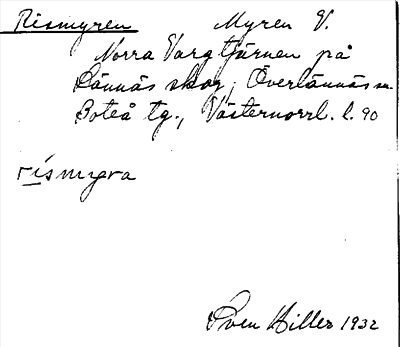 Rismyren Myren V.
Norra Vargtjärnen på
Lännäs skog, Överlännäs sn.
Boteå tg., Västernorrl. l. 90
rismyra
Sven Hiller 1932